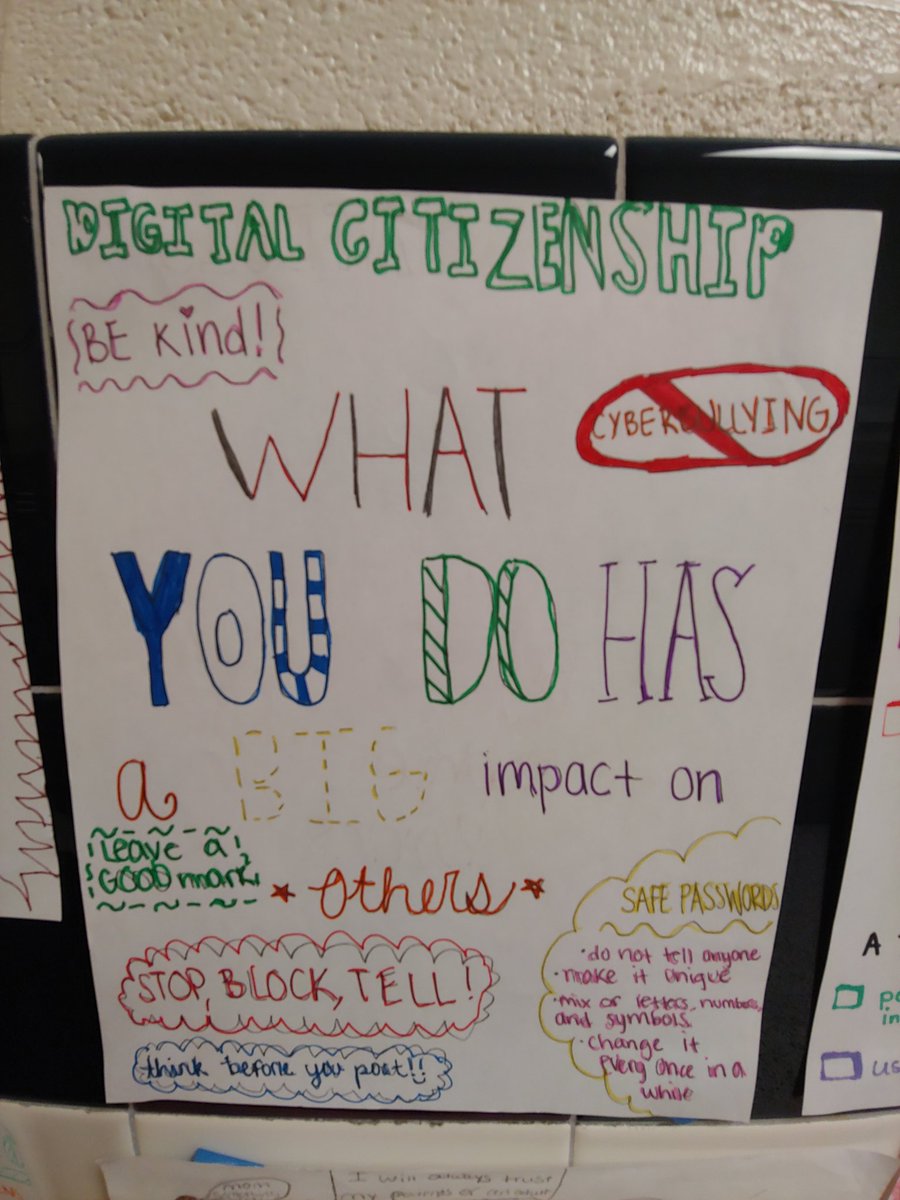 DIGITAL CITIZENSHIP
BE kind!
CYBERBULLYING
WHAT
YOU DO HAS
a BIG impact on
others
Leave a
GOOD mark
STOP, BLOCK, TELL!
think before you post!!
SAFE PASSWORDS
· do not tell anyone
· make it unique
· mix of letters, numbers,
and symbols.
· change it
every once in a
while
A
us
mom
I will always trust
my parents or an adult